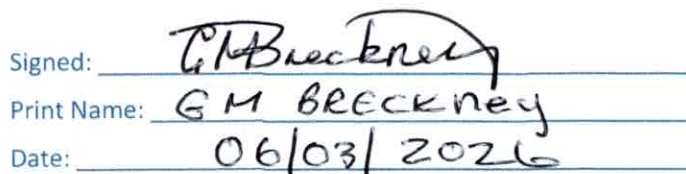 Signed: GMBreckney
Print Name: GM BRECKney
Date: 06/03/2026